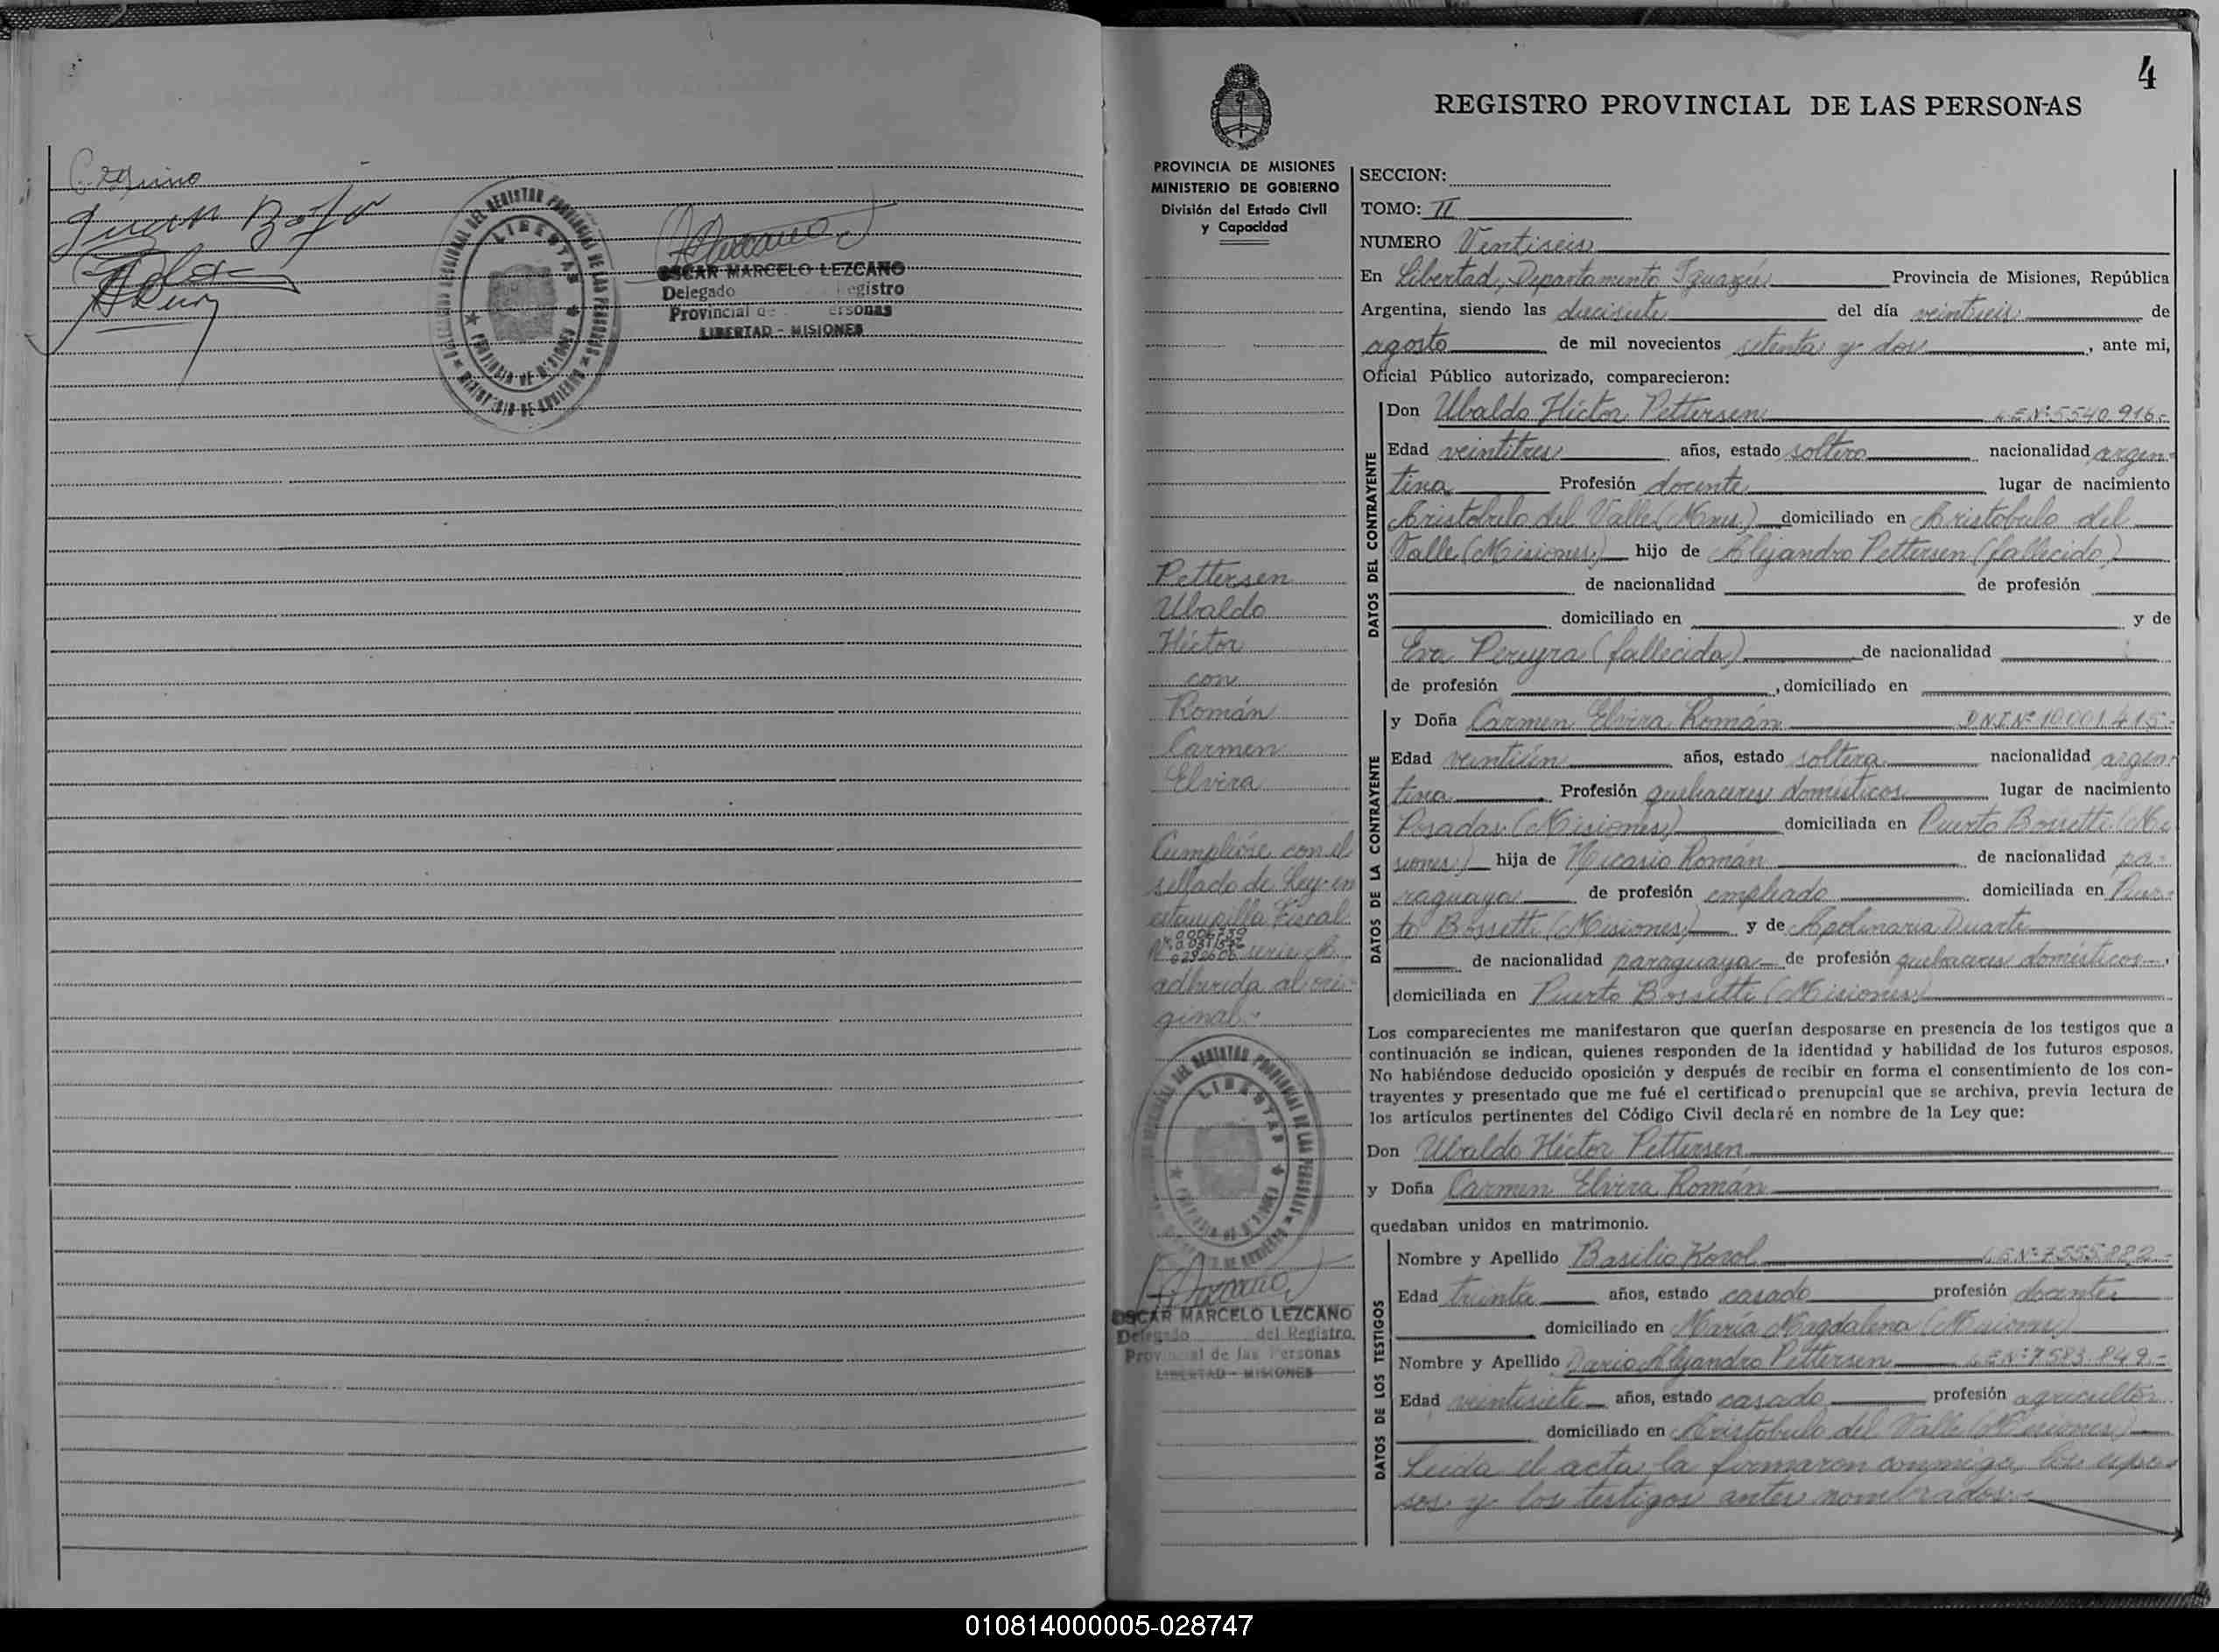 OSCAR MARCELO LEZCANO
Delegado Registro
Provincial de Personas
LIBERTAD - MISIONES
4
REGISTRO PROVINCIAL DE LAS PERSONAS
PROVINCIA DE MISIONES
MINISTERIO DE GOBIERNO
División del Estado Civil
y Capacidad
Pettersen
Ubaldo
Héctor
con
Román
Carmen
Elvira
Cumplióse con el
sellado de Ley en
estampilla Fiscal
Nº serie A
adherida al ori-
ginal.-
OSCAR MARCELO LEZCANO
Delegado del Registro
Provincial de las Personas
LIBERTAD - MISIONES
SECCION:
TOMO: II
NUMERO Ventiseis
En Libertad, Departamento Iguazú Provincia de Misiones, República
Argentina, siendo las diecisiete del día veintiseis de
agosto de mil novecientos setenta y dos, ante mi,
Oficial Público autorizado, comparecieron:
DATOS DEL CONTRAYENTE
Don Ubaldo Héctor Pettersen L.E.Nº 5.540.916.-
Edad veintitres años, estado soltero nacionalidad argen-
tina Profesión docente lugar de nacimiento
Aristóbulo del Valle (Mnes.) domiciliado en Aristóbulo del
Valle (Misiones) hijo de Alejandro Pettersen (fallecido)
de nacionalidad de profesión
domiciliado en y de
Eva Pereyra (fallecida) de nacionalidad
de profesión , domiciliado en
DATOS DE LA CONTRAYENTE
y Doña Carmen Elvira Román D.N.I.Nº 10.001.415.-
Edad veintiún años, estado soltera nacionalidad argen-
tina Profesión quehaceres domésticos lugar de nacimiento
Posadas (Misiones) domiciliada en Puerto Bossetti (Mi
siones) hija de Nicasio Román de nacionalidad pa-
raguaya de profesión empleado domiciliada en Puer-
to Bossetti (Misiones) y de Apolinaria Duarte
de nacionalidad paraguaya de profesión quehaceres domésticos,
domiciliada en Puerto Bossetti (Misiones)
Los comparecientes me manifestaron que querían desposarse en presencia de los testigos que a
continuación se indican, quienes responden de la identidad y habilidad de los futuros esposos.
No habiéndose deducido oposición y después de recibir en forma el consentimiento de los con-
trayentes y presentado que me fué el certificado prenupcial que se archiva, previa lectura de
los artículos pertinentes del Código Civil declaré en nombre de la Ley que:
Don Ubaldo Héctor Pettersen
y Doña Carmen Elvira Román
quedaban unidos en matrimonio.
DATOS DE LOS TESTIGOS
Nombre y Apellido Basilio Korol L.E.Nº 7.555.882.-
Edad treinta años, estado casado profesión docente
domiciliado en María Magdalena (Misiones)
Nombre y Apellido Dario Alejandro Pettersen L.E.Nº 7.583.849.-
Edad veintisiete años, estado casado profesión agricultor
domiciliado en Aristóbulo del Valle (Misiones)
Leida el acta la firmaron conmigo, los espo-
sos y los testigos antes nombrados.-
010814000005-028747